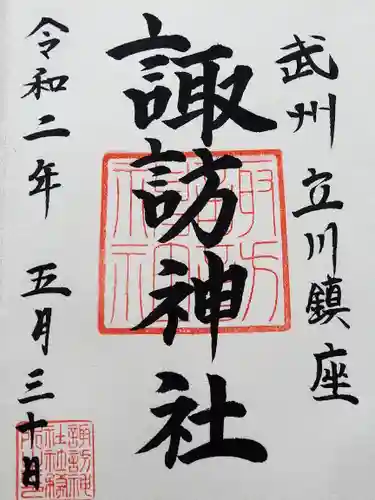 武州 立川鎮座
諏訪神社
令和二年 五月三十日
諏訪神社